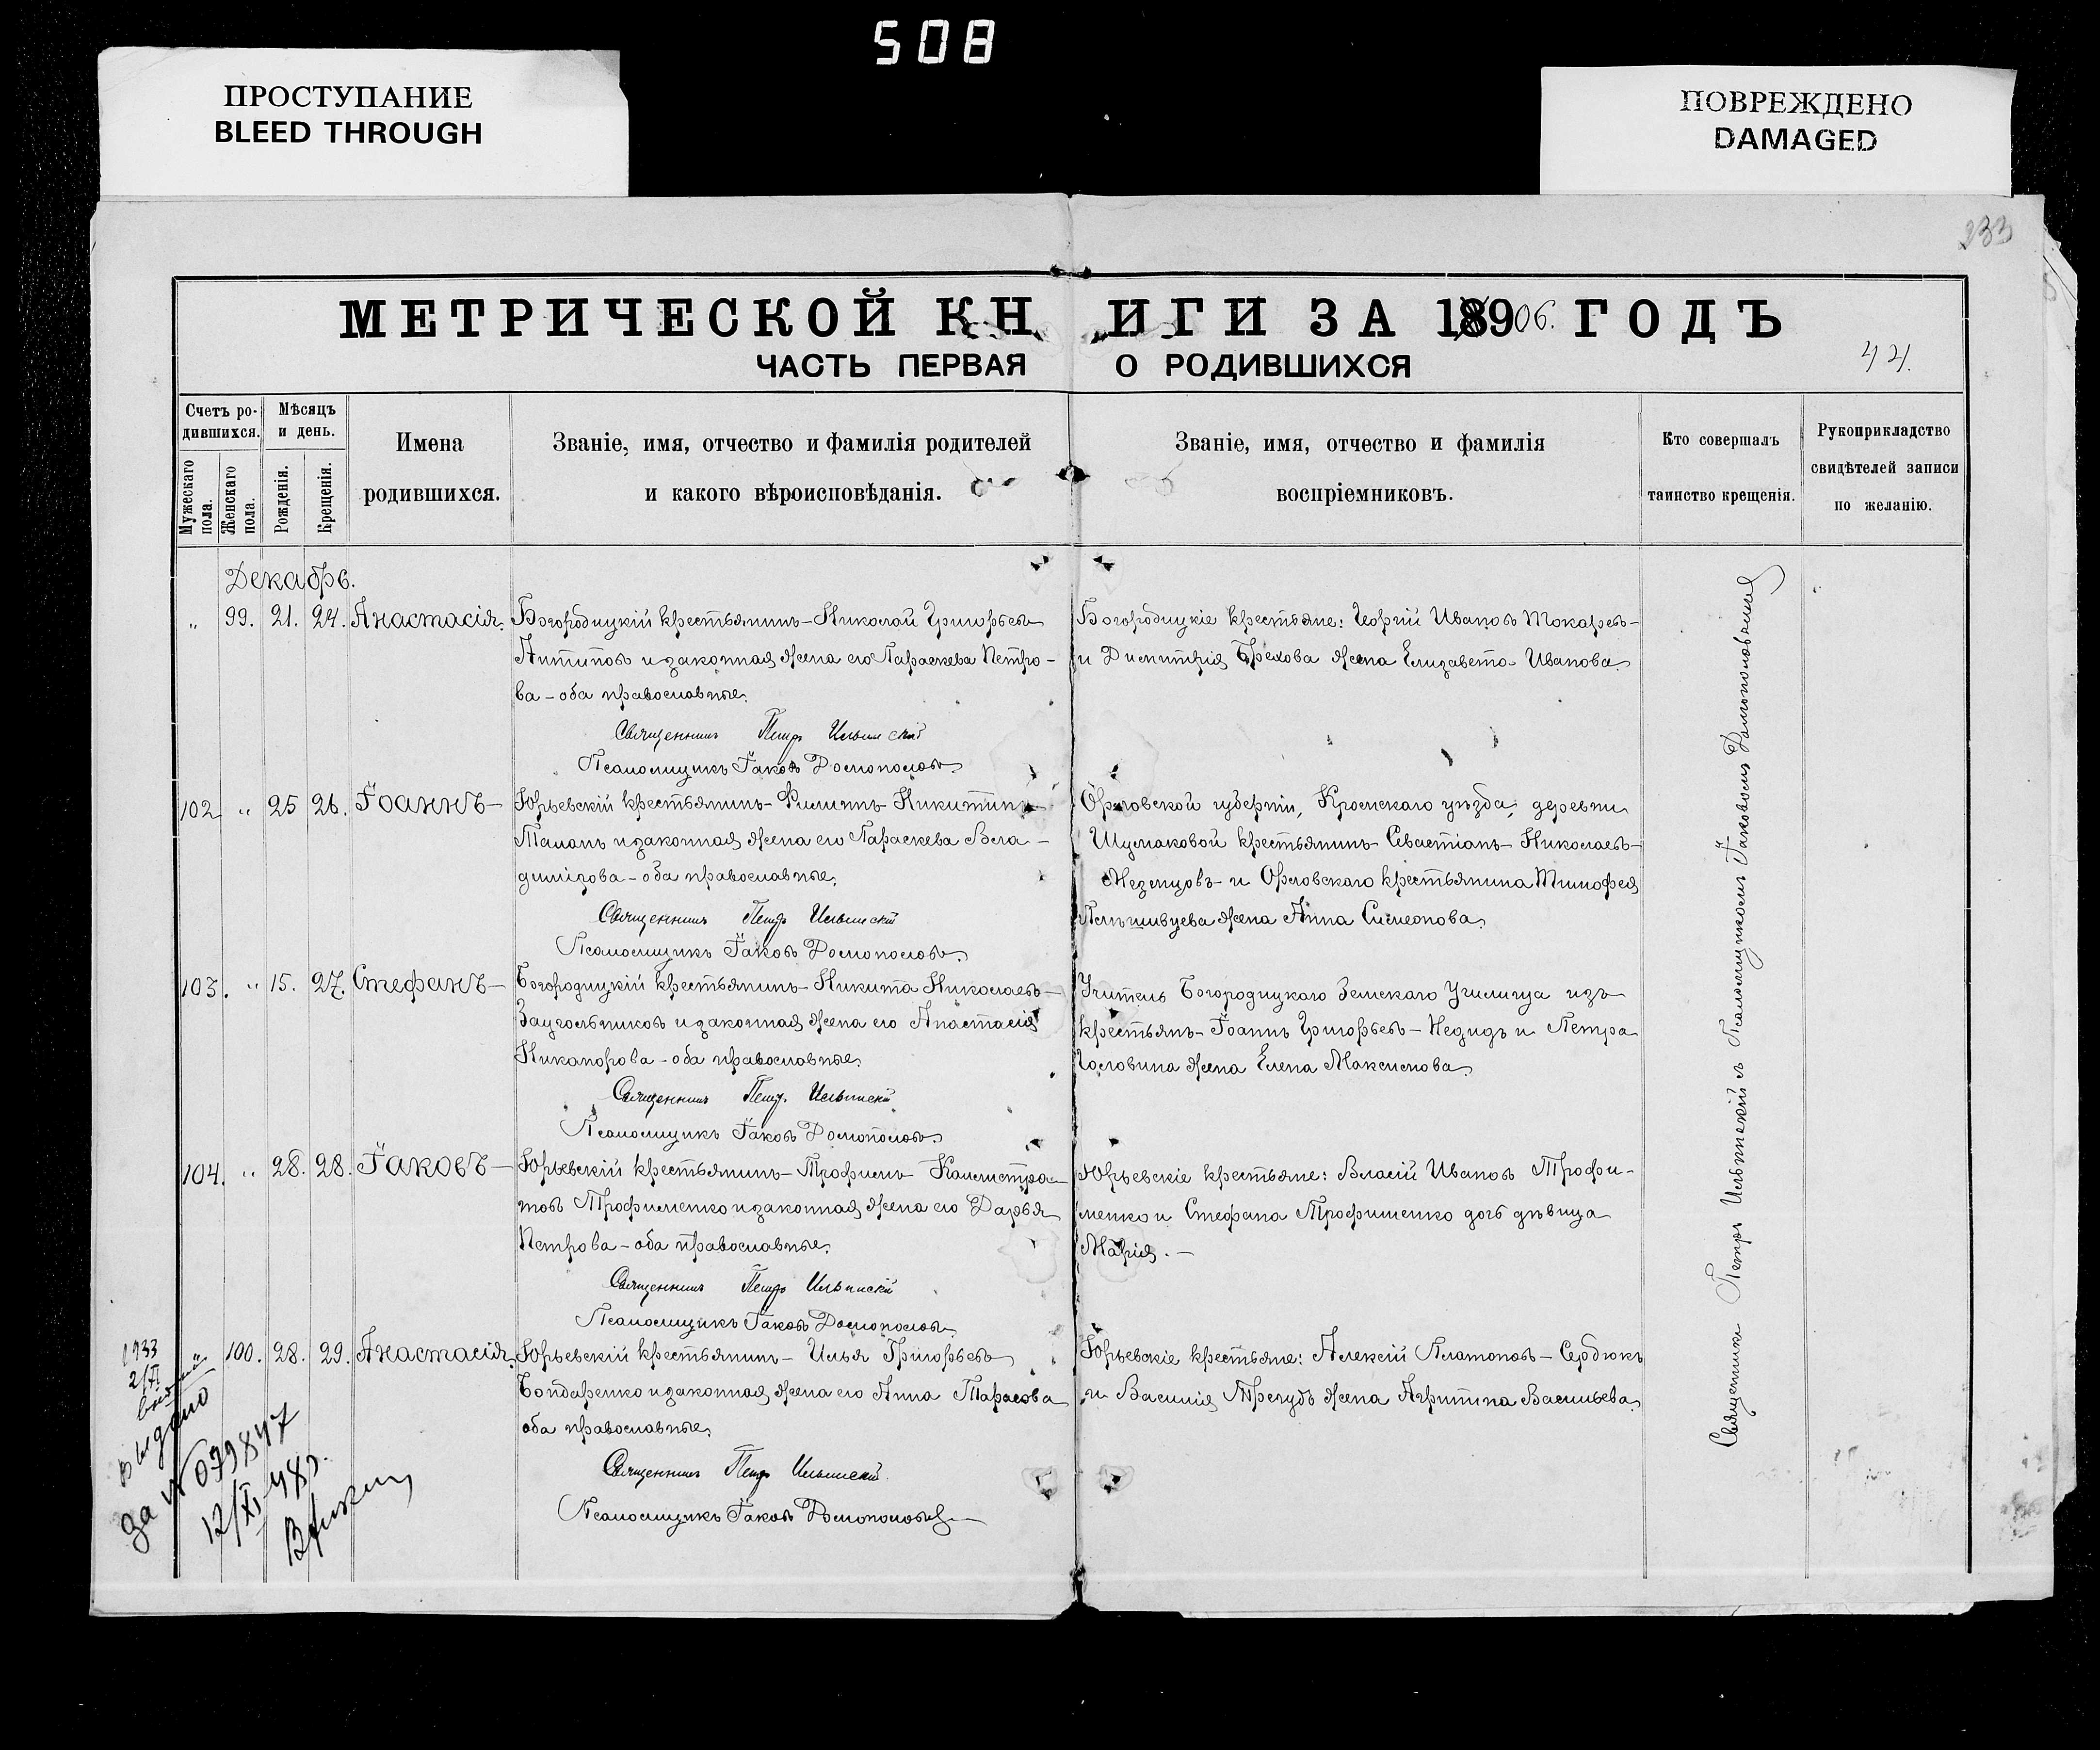 508
ПРОСТУПАНИЕ
BLEED THROUGH
ПОВРЕЖДЕНО
DAMAGED
233
МЕТРИЧЕСКОЙ КНИГИ ЗА 18906. ГОДЪ
ЧАСТЬ ПЕРВАЯ О РОДИВШИХСЯ
Счетъ ро-
дившихся.
Мужескаго пола.
Женскаго пола.
Мѣсяцъ
и день.
Рожденія.
Крещенія.
Имена
родившихся.
Званіе, имя, отчество и фамилія родителей
и какого вѣроисповѣданія.
Званіе, имя, отчество и фамилія
воспріемниковъ.
Кто совершалъ
таинство крещенія.
Рукоприкладство
свидѣтелей записи
по желанію.
Декабрь.
„ 99. 21. 24. Анастасія.
Богородицкій крестьянинъ – Николай Григорьевъ
Антиповъ и законная жена его Параскева Петро-
ва – оба православные.
Священникъ Петръ Ильинскій
Псаломщикъ Іаковъ
Богородицкіе крестьяне: Георгій Ивановъ Токаревъ –
и Димитрія Орехова жена Елизавета Иванова.
102 „ 25 26. Іоаннъ –
Юрьевскій крестьянинъ – Филиппъ Никитинъ
и законная жена его Параскева Вла-
димірова – оба православные.
Священникъ Петръ Ильинскій
Псаломщикъ Іаковъ
Орловской губерніи, Кромскаго уѣзда, деревни
Шумаковой крестьянинъ – Севастіанъ – Николаевъ –
и Орловскаго крестьянина Тимофея
жена Анна Симеонова.
103. „ 15. 27. Стефанъ –
Богородицкій крестьянинъ – Никита Николаевъ –
Заугольниковъ и законная жена его Анастасія
Никанорова – оба православные.
Священникъ Петръ Ильинскій
Псаломщикъ Іаковъ
Учитель Богородицкаго Земскаго Училища изъ
крестьянъ – Іоаннъ Григорьевъ – и Петра
Головина жена Елена Максимова.
104. „ 28. 28. Іаковъ –
Юрьевскій крестьянинъ – Трофимъ Каллистра-
товъ Трофименко и законная жена его Дарья
Петрова – оба православные.
Священникъ Петръ Ильинскій
Псаломщикъ Іаковъ
Юрьевскіе крестьяне: Власій Ивановъ Трофи-
менко и Стефана Трофименко дочь дѣвица
Марія. –
„ 100. 28. 29. Анастасія.
Юрьевскій крестьянинъ – Илья Григорьевъ
Бондаренко и законная жена его Анна Тарасова
оба православные.
Священникъ Петръ Ильинскій
Псаломщикъ Іаковъ
Юрьевскіе крестьяне: Алексій Платоновъ – Сердюкъ
и Василія жена Агриппина Васильева.
Священникъ Петръ Ильинскій съ Псаломщикомъ Іаковомъ
1933
2/XI
Выдано
за № 079847
12/XI 48г.